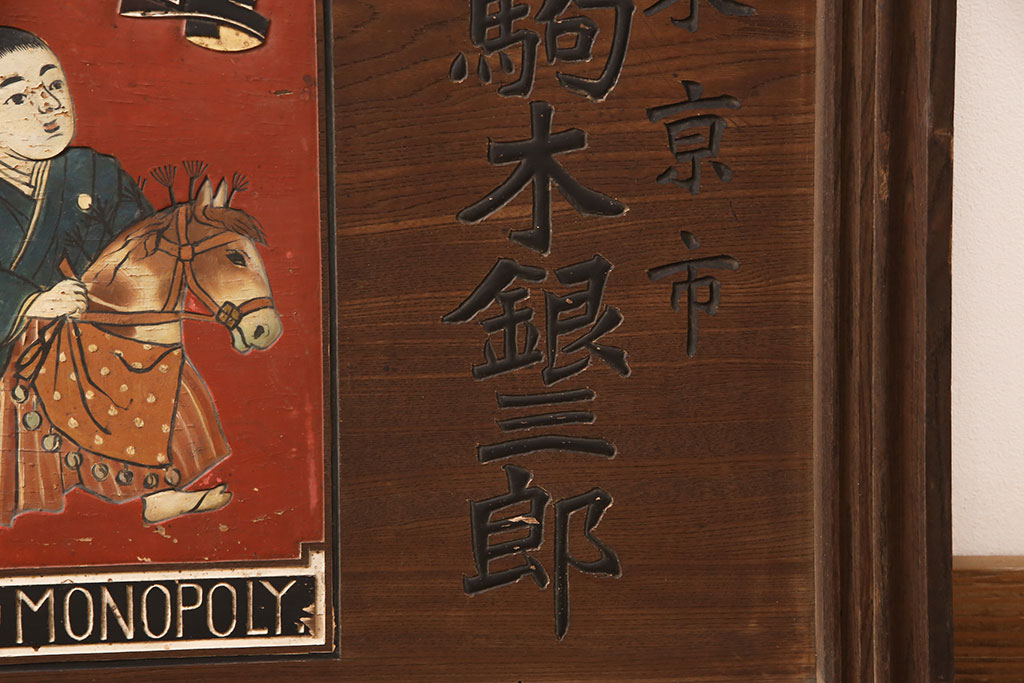 東京市
駒木銀三郎
MONOPOLY.